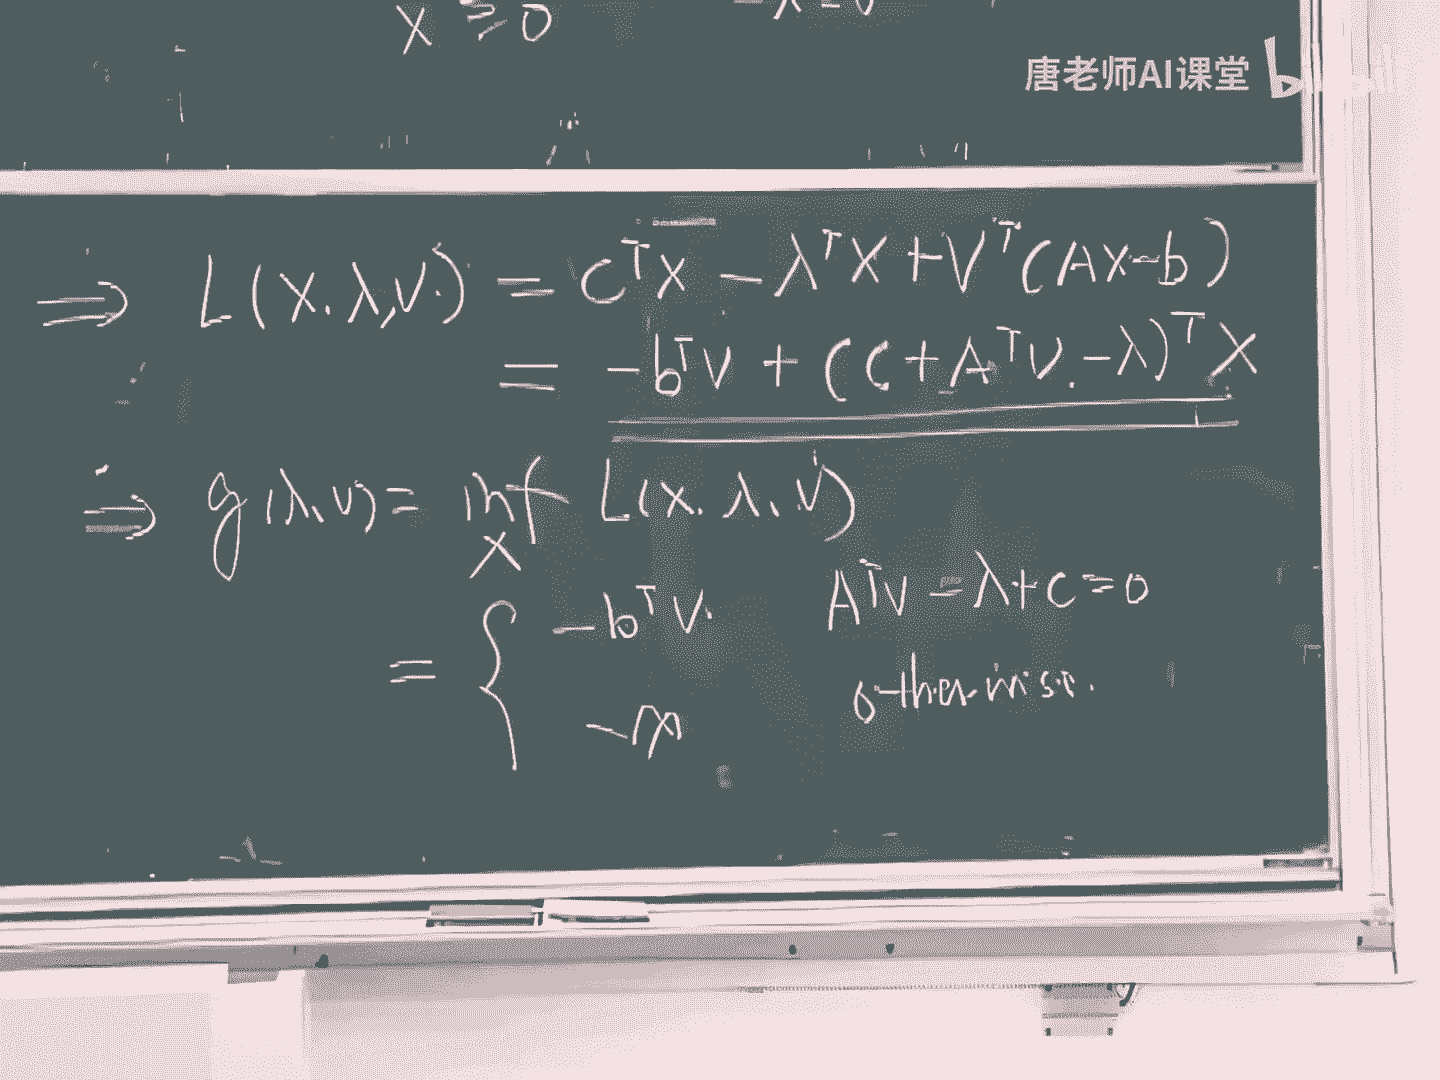 x ≥ 0
唐老师AI课堂
⇒ L(x.λ,v.) = cᵀx − λᵀx + vᵀ(Ax−b)
= −bᵀv + (c+Aᵀv.−λ)ᵀx
⇒ g(λ,v) = inf L(x.λ.v)
x
= { −bᵀv. Aᵀv − λ + c = 0
−∞ otherwise.